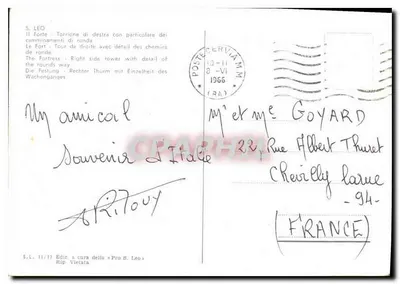 S. LEO
Il forte - Torrione di destra con particolare dei
camminamenti di ronda
Le Fort - Tour de droite avec détail des chemins
de ronde
The Fortress - Right side tower with detail of
the rounds way
Die Festung - Rechter Thurm mit Einzelheit des
Wachenganges
10-11
8-VI
1966
Un amical
Souvenir d'Italie
Mr et Me GOYARD
22, Rue Albert Thuret
Chevilly Larue
-94-
(FRANCE)
S.L. 11/11 Ediz. a cura della «Pro S. Leo»
Rip. Vietata